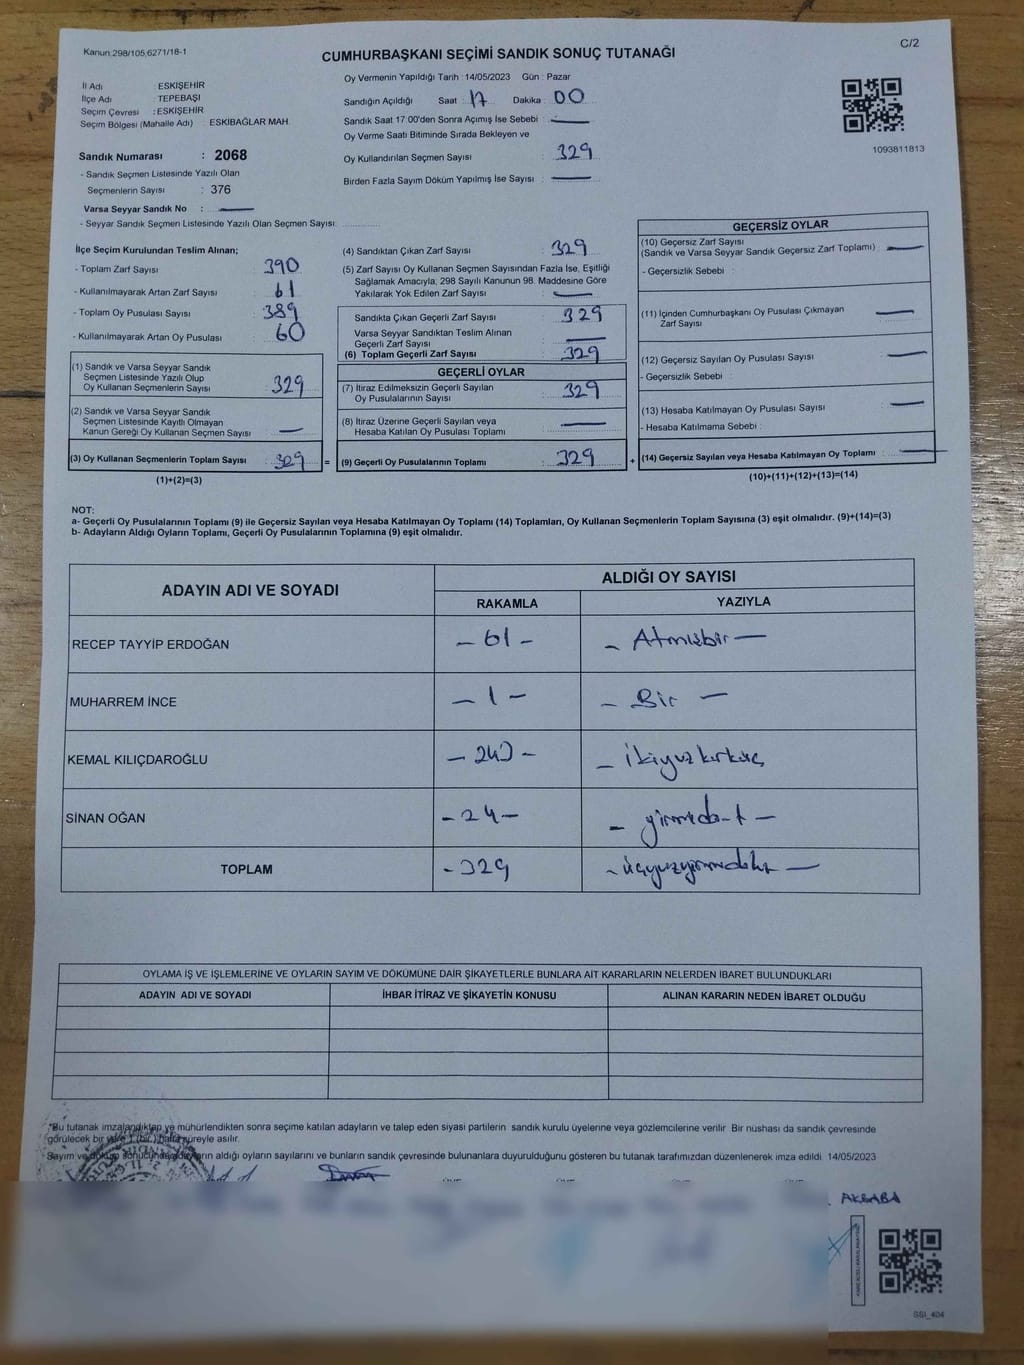 Kanun,298/105,6271/18-1
C/2
CUMHURBAŞKANI SEÇİMİ SANDIK SONUÇ TUTANAĞI
İl Adı : ESKİŞEHİR
İlçe Adı : TEPEBAŞI
Seçim Çevresi : ESKİŞEHİR
Seçim Bölgesi (Mahalle Adı) : ESKIBAĞLAR MAH.
Sandık Numarası : 2068
- Sandık Seçmen Listesinde Yazılı Olan
Seçmenlerin Sayısı : 376
Varsa Seyyar Sandık No : —
- Seyyar Sandık Seçmen Listesinde Yazılı Olan Seçmen Sayısı:
Oy Vermenin Yapıldığı Tarih : 14/05/2023 Gün : Pazar
Sandığın Açıldığı Saat : 17 Dakika : 00
Sandık Saat 17:00'den Sonra Açımış İse Sebebi : —
Oy Verme Saati Bitiminde Sırada Bekleyen ve
Oy Kullandırılan Seçmen Sayısı : 329
Birden Fazla Sayım Döküm Yapılmış İse Sayısı : —
1093811813
İlçe Seçim Kurulundan Teslim Alınan;
- Toplam Zarf Sayısı : 390
- Kullanılmayarak Artan Zarf Sayısı : 61
- Toplam Oy Pusulası Sayısı : 389
- Kullanılmayarak Artan Oy Pusulası : 60
(1) Sandık ve Varsa Seyyar Sandık
Seçmen Listesinde Yazılı Olup
Oy Kullanan Seçmenlerin Sayısı : 329
(2) Sandık ve Varsa Seyyar Sandık
Seçmen Listesinde Kayıtlı Olmayan
Kanun Gereği Oy Kullanan Seçmen Sayısı : —
(3) Oy Kullanan Seçmenlerin Toplam Sayısı : 329
(1)+(2)=(3)
(4) Sandıktan Çıkan Zarf Sayısı : 329
(5) Zarf Sayısı Oy Kullanan Seçmen Sayısından Fazla İse, Eşitliği
Sağlamak Amacıyla, 298 Sayılı Kanunun 98. Maddesine Göre
Yakılarak Yok Edilen Zarf Sayısı : —
Sandıkta Çıkan Geçerli Zarf Sayısı : 329
Varsa Seyyar Sandıktan Teslim Alınan
Geçerli Zarf Sayısı : —
(6) Toplam Geçerli Zarf Sayısı : 329
GEÇERLİ OYLAR
(7) İtiraz Edilmeksizin Geçerli Sayılan
Oy Pusulalarının Sayısı : 329
(8) İtiraz Üzerine Geçerli Sayılan veya
Hesaba Katılan Oy Pusulası Toplamı : —
= (9) Geçerli Oy Pusulalarının Toplamı : 329
GEÇERSİZ OYLAR
(10) Geçersiz Zarf Sayısı
(Sandık ve Varsa Seyyar Sandık Geçersiz Zarf Toplamı) : —
- Geçersizlik Sebebi :
(11) İçinden Cumhurbaşkanı Oy Pusulası Çıkmayan
Zarf Sayısı : —
(12) Geçersiz Sayılan Oy Pusulası Sayısı : —
- Geçersizlik Sebebi :
(13) Hesaba Katılmayan Oy Pusulası Sayısı : —
- Hesaba Katılmama Sebebi :
+ (14) Geçersiz Sayılan veya Hesaba Katılmayan Oy Toplamı : —
(10)+(11)+(12)+(13)=(14)
NOT:
a- Geçerli Oy Pusulalarının Toplamı (9) ile Geçersiz Sayılan veya Hesaba Katılmayan Oy Toplamı (14) Toplamları, Oy Kullanan Seçmenlerin Toplam Sayısına (3) eşit olmalıdır. (9)+(14)=(3)
b- Adayların Aldığı Oyların Toplamı, Geçerli Oy Pusulalarının Toplamına (9) eşit olmalıdır.
ADAYIN ADI VE SOYADI
ALDIĞI OY SAYISI
RAKAMLA YAZIYLA
RECEP TAYYİP ERDOĞAN - 61 - - Atmışbir -
MUHARREM İNCE - 1 - - Bir -
KEMAL KILIÇDAROĞLU - 243 - - ikiyuzkırküç
SİNAN OĞAN - 24 - - yirmidört -
TOPLAM - 329 - üçyuzyirmidokuz -
OYLAMA İŞ VE İŞLEMLERİNE VE OYLARIN SAYIM VE DÖKÜMÜNE DAİR ŞİKAYETLERLE BUNLARA AİT KARARLARIN NELERDEN İBARET BULUNDUKLARI
ADAYIN ADI VE SOYADI İHBAR İTİRAZ VE ŞİKAYETİN KONUSU ALINAN KARARIN NEDEN İBARET OLDUĞU
"Bu tutanak imzalandıktan ve mühürlendikten sonra seçime katılan adayların ve talep eden siyasi partilerin sandık kurulu üyelerine veya gözlemcilerine verilir Bir nüshası da sandık çevresinde
görülecek bir yere 1 (bir) hafta süreyle asılır.
Sayım ve döküm sonucunda adayların aldığı oyların sayılarını ve bunların sandık çevresinde bulunanlara duyurulduğunu gösteren bu tutanak tarafımızdan düzenlenerek imza edildi. 14/05/2023
AKBABA
SSI_404